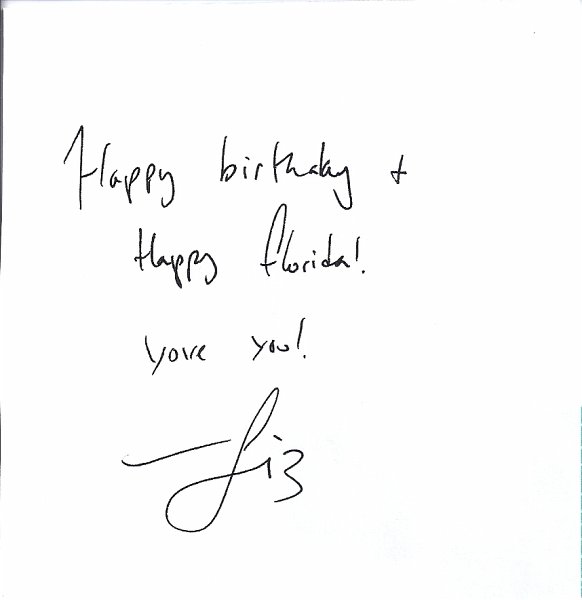 Happy birthday +
Happy Florida!
Yove you!
—Liz